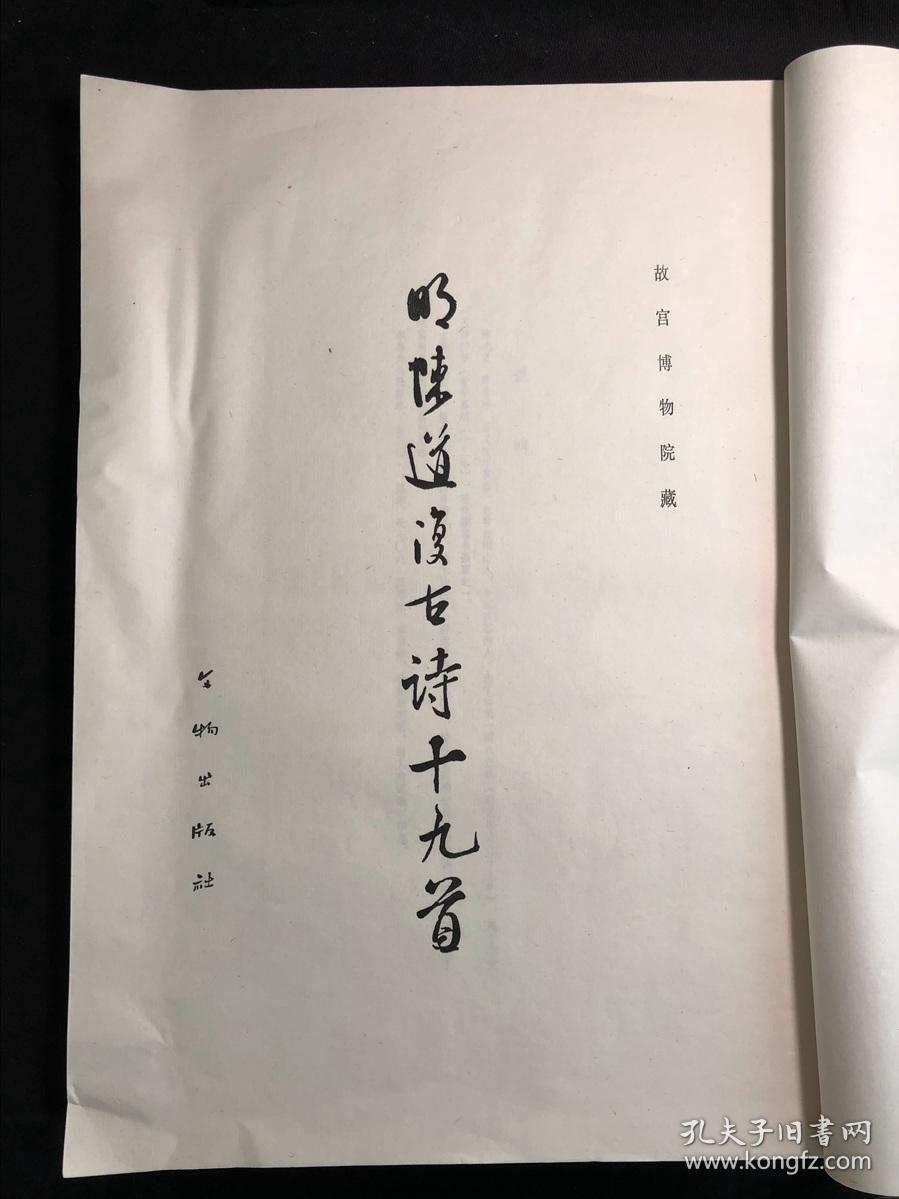 故宫博物院藏
明陳道復古诗十九首
文物出版社
孔夫子旧書网
www.kongfz.com